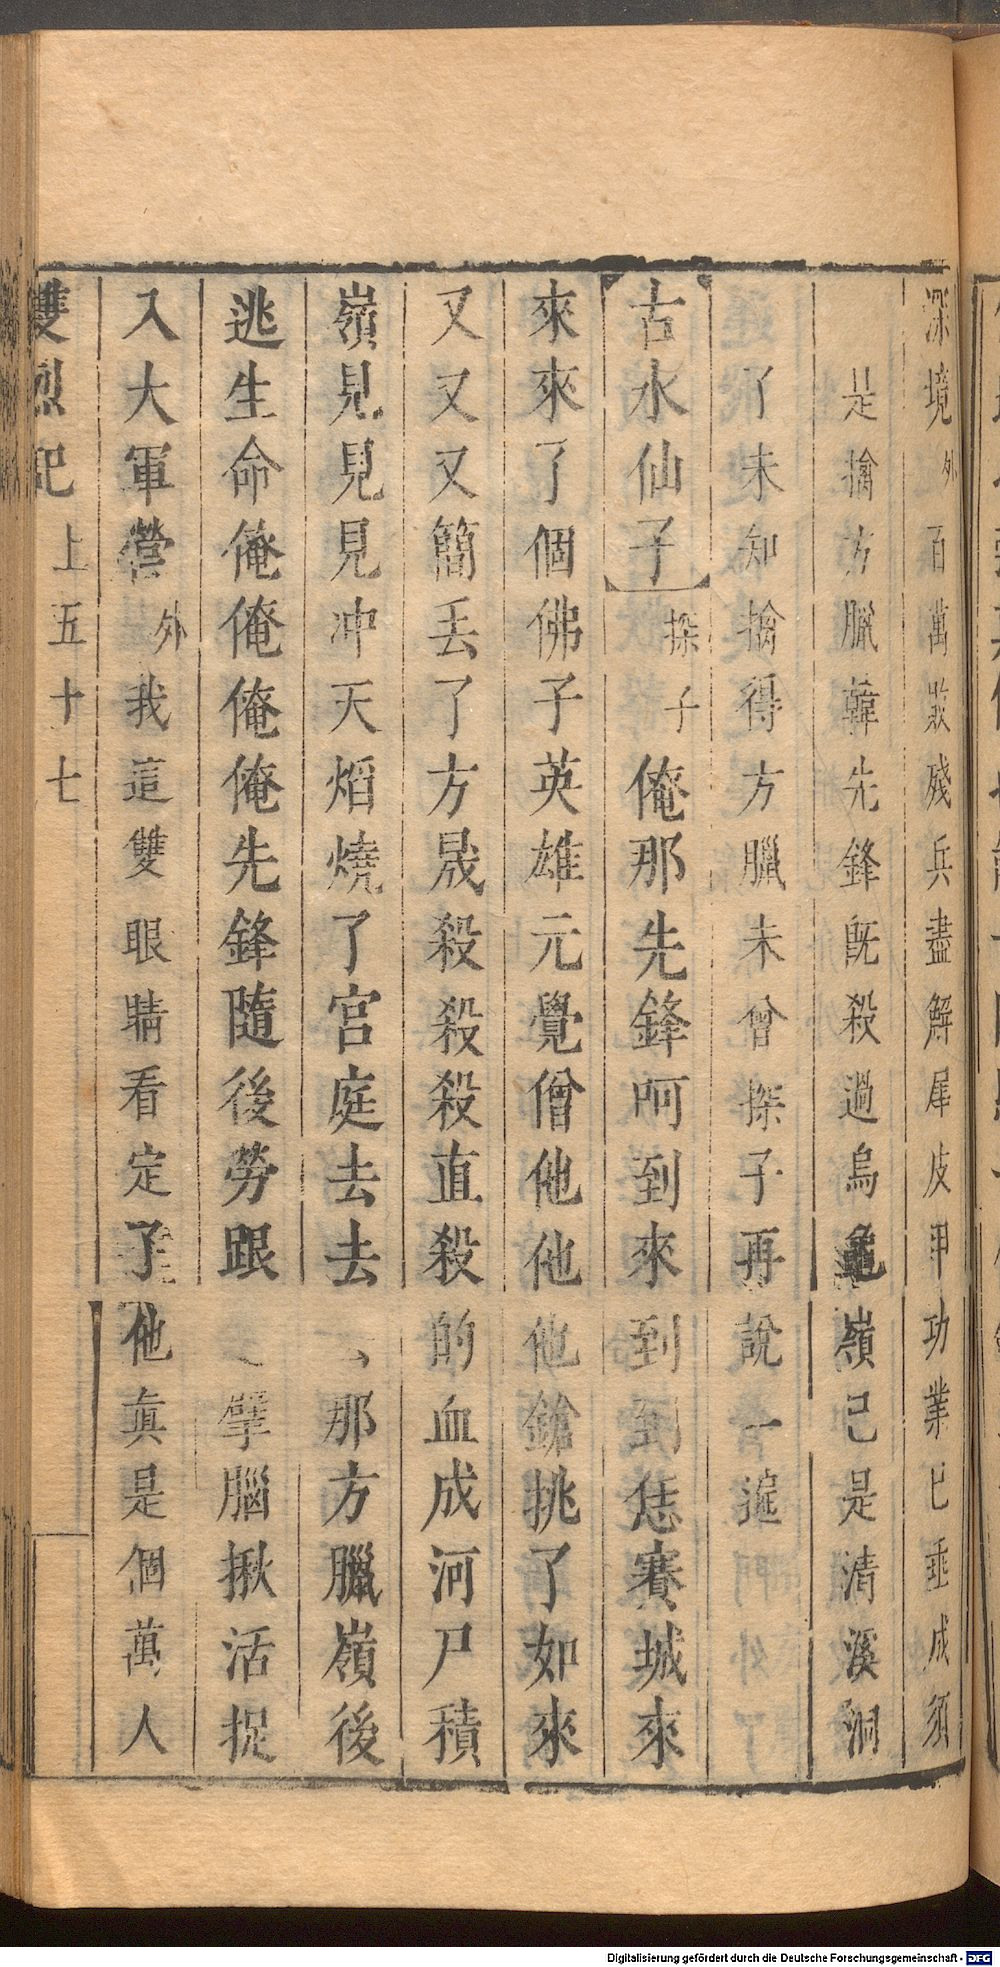 深境外百萬敗殘兵盡解犀皮甲功業已垂成須
是擒方臘韓先鋒旣殺過烏龜嶺已是清溪洞
了未知擒得方臘未曾探子再說一遍
古水仙子探子俺那先鋒呵到來到到恁賽城來
來來了個佛子英雄元覺僧他他他鎗挑了如來
又又又簡丟了方晟殺殺殺直殺的血成河尸積
嶺見見見冲天熖燒了宮庭去去那方臘嶺後
逃生命俺俺俺俺先鋒隨後勞跟擘腦揪活捉
入大軍營外我這雙眼睛看定了他眞是個萬人
雙烈記上五十七
Digitalisierung gefördert durch die Deutsche Forschungsgemeinschaft - DFG